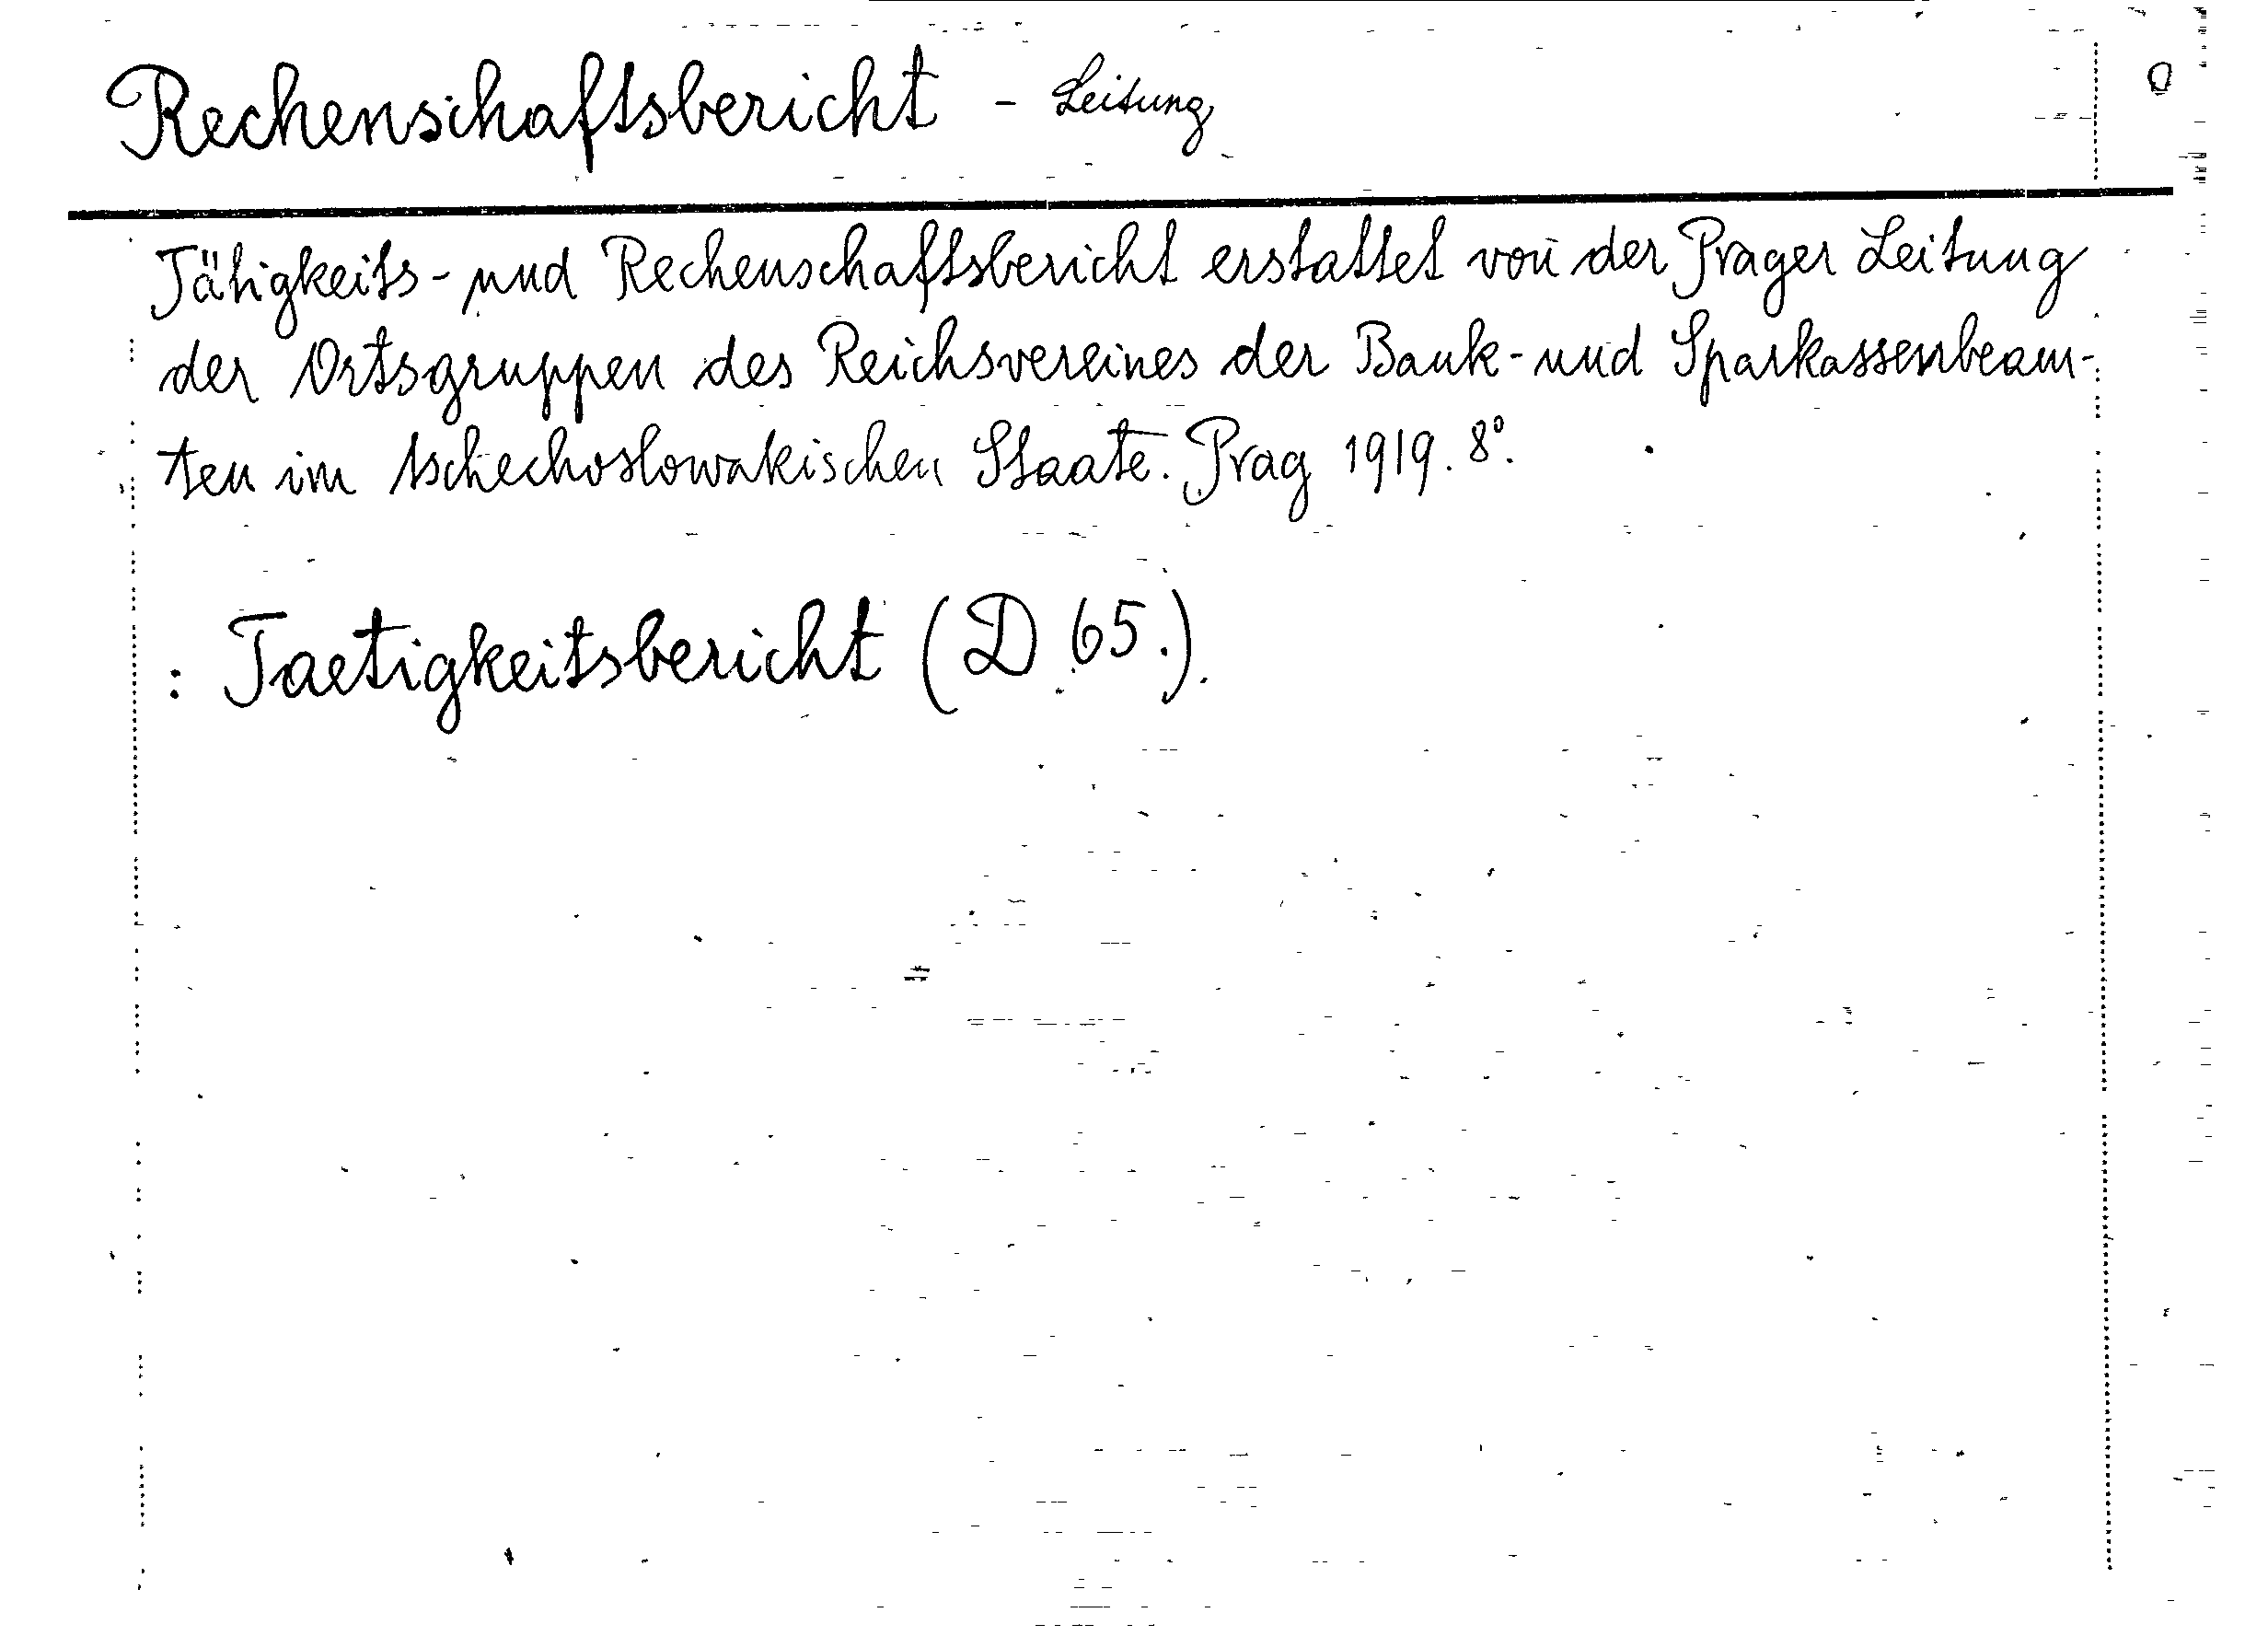 Rechenschaftsbericht - Leitung
Tätigkeits- und Rechenschaftsbericht erstattet von der Prager Leitung
der Ortsgruppen des Reichsvereines der Bank- und Sparkassenbeam-
ten im tschechoslowakischen Staate. Prag 1919. 8°.
: Taetigkeitsbericht (D 65.)